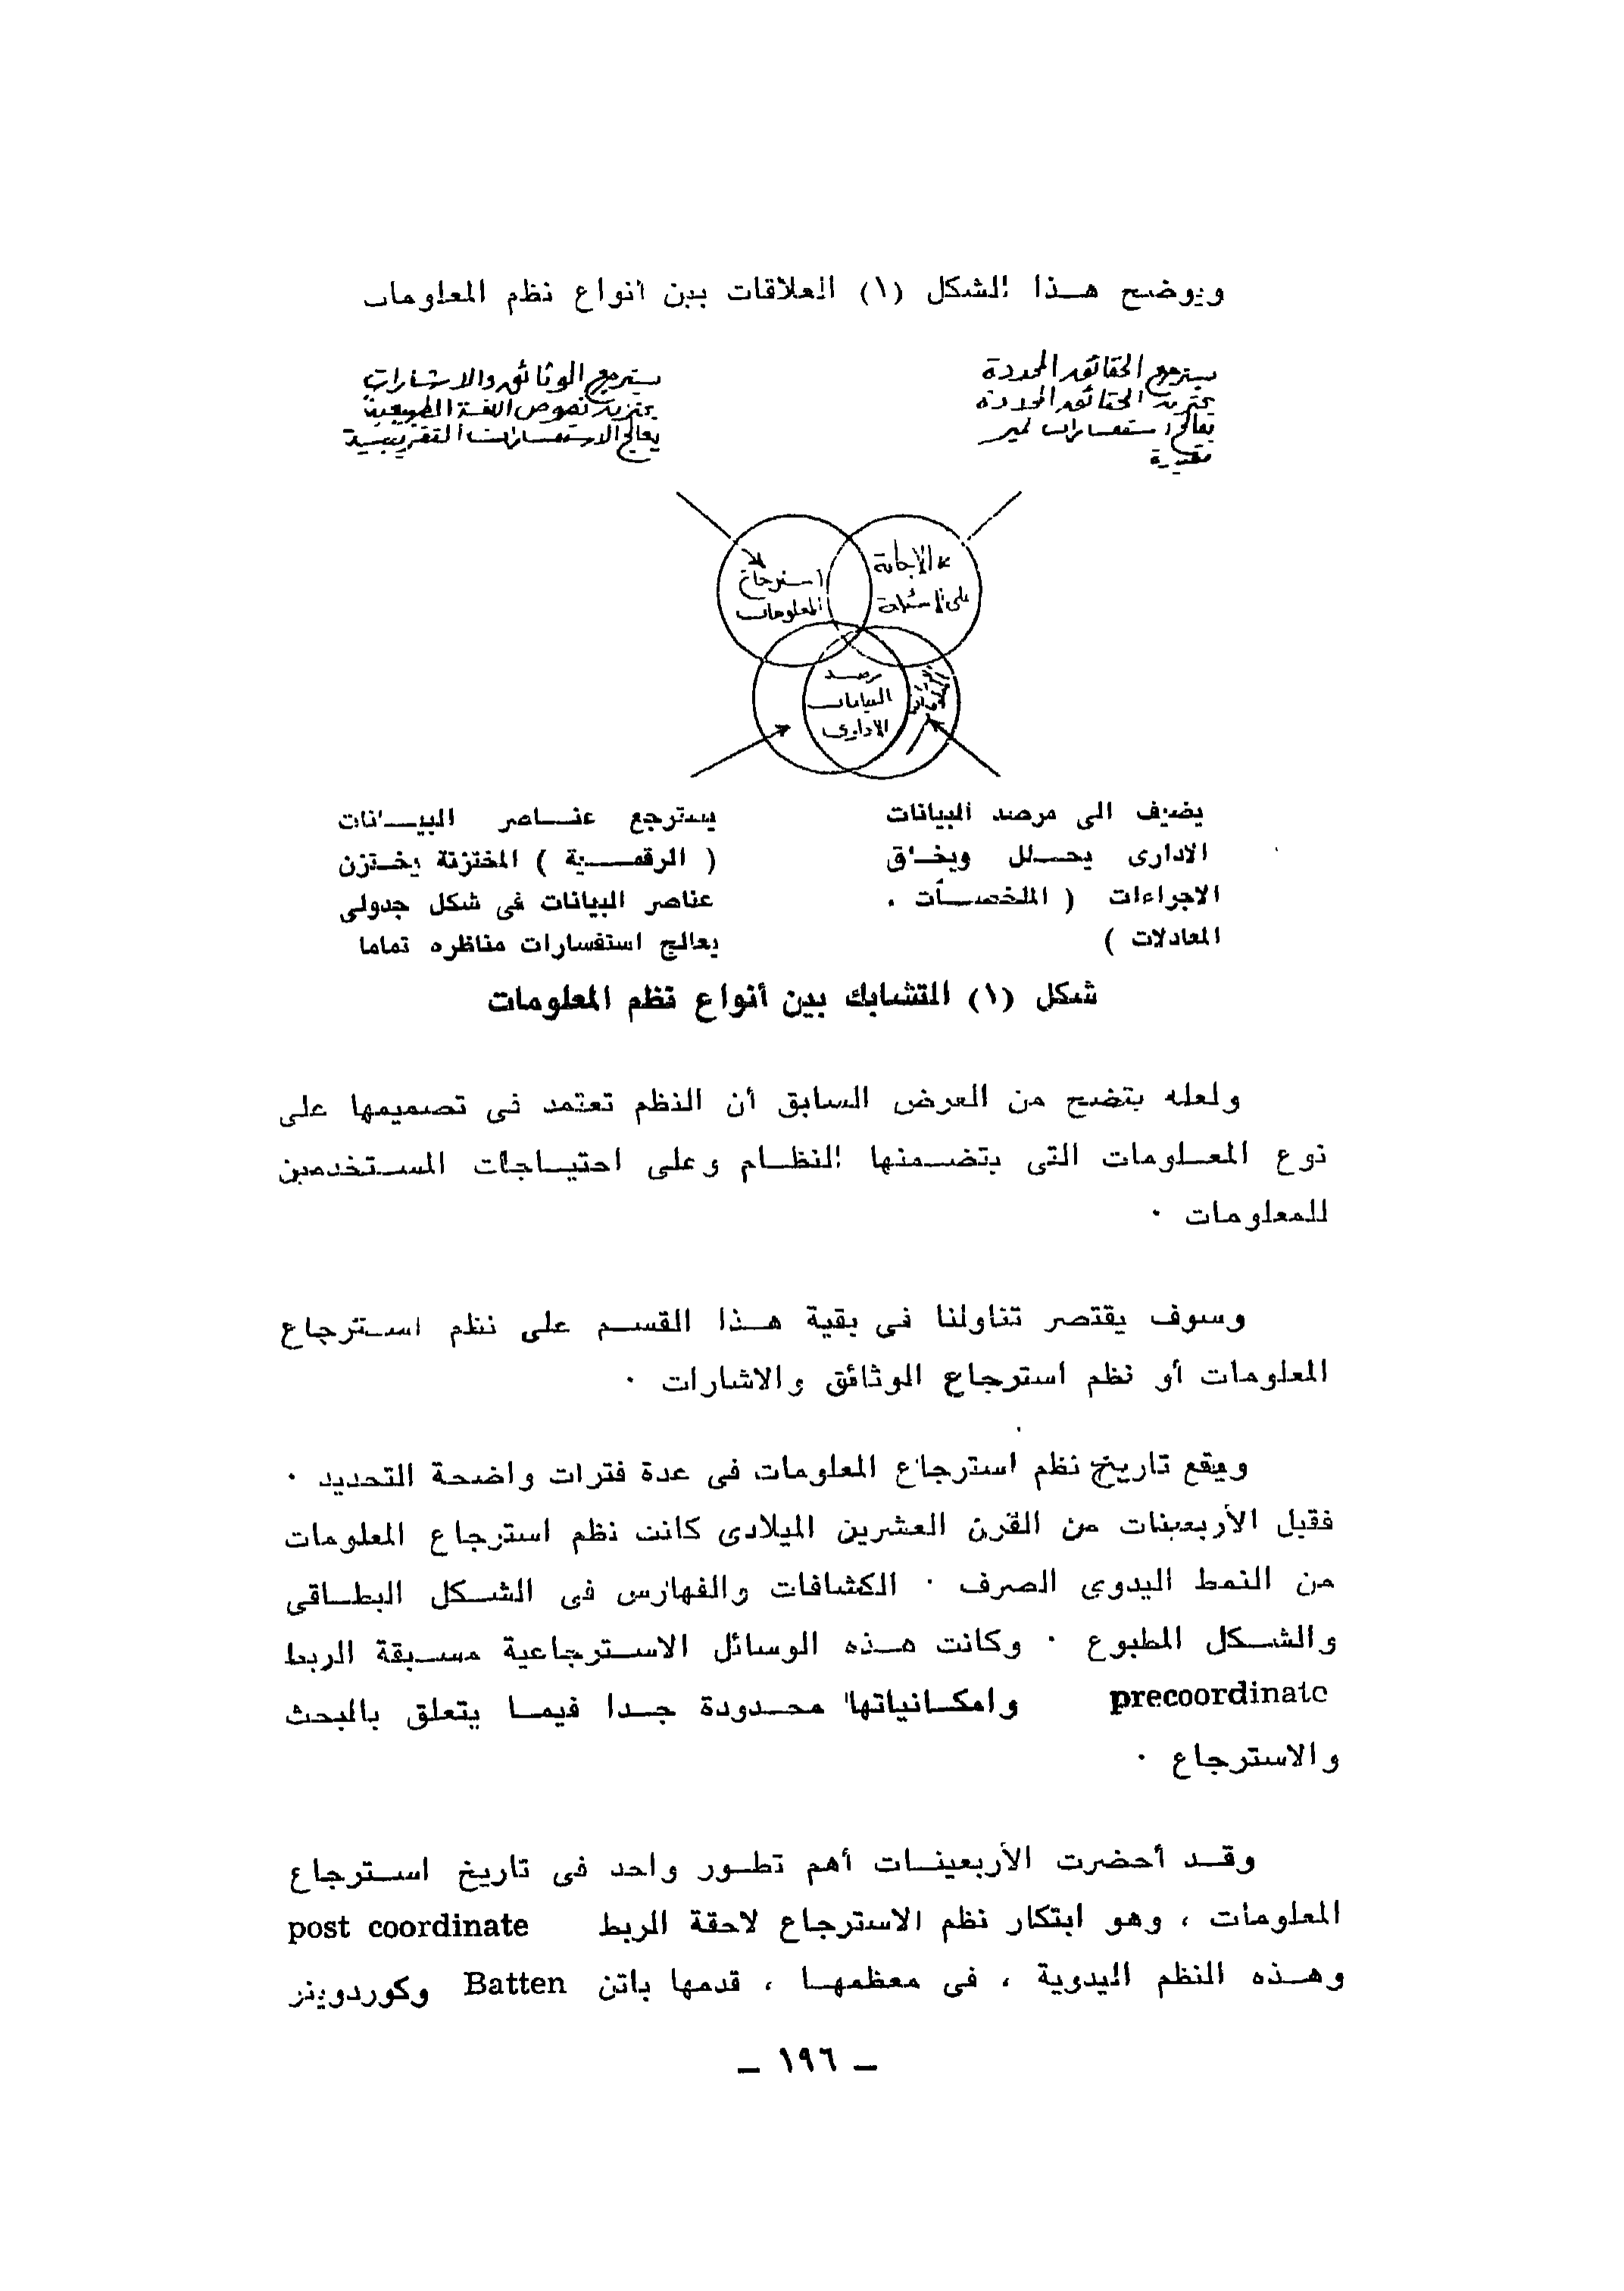 ويوضح هذا الشكل (١) العلاقات بين أنواع نظم المعلومات
يسترجع الحقائق المحددة
يختزن الحقائق المحددة
يعالج استفسارات غير
مقيدة
يسترجع الوثائق والاشارات
يختزن نصوص اللغة الطبيعية
يعالج الاستفسارات التقريبية
الإجابة
على الأسئلة
استرجاع
المعلومات
مرصد
البيانات
الادارى
يضيف الى مرصد البيانات
الادارى يحلل ويخلق
الاجراءات ( الملخصات ،
المعادلات )
يسترجع عناصر البيانات
( الرقمية ) المختزنة يختزن
عناصر البيانات فى شكل جدولى
يعالج استفسارات مناظره تماما
شكل (١) التشابك بين أنواع نظم المعلومات
ولعله يتضح من العرض السابق أن النظم تعتمد فى تصميمها على
نوع المعلومات التى يتضمنها النظام وعلى احتياجات المستخدمين
للمعلومات ٠
وسوف يقتصر تناولنا فى بقية هذا القسم على نظم استرجاع
المعلومات أو نظم استرجاع الوثائق والاشارات ٠
ويقع تاريخ نظم استرجاع المعلومات فى عدة فترات واضحة التحديد ٠
فقبل الأربعينات من القرن العشرين الميلادى كانت نظم استرجاع المعلومات
من النمط اليدوى الصرف ٠ الكشافات والفهارس فى الشكل البطاقى
والشكل المطبوع ٠ وكانت هذه الوسائل الاسترجاعية مسبقة الربط
precoordinate وامكانياتها محدودة جدا فيما يتعلق بالبحث
والاسترجاع ٠
وقد أحضرت الأربعينات أهم تطور واحد فى تاريخ استرجاع
المعلومات ، وهو ابتكار نظم الاسترجاع لاحقة الربط post coordinate
وهذه النظم اليدوية ، فى معظمها ، قدمها باتن Batten وكوردوينز
ـ ١٩٦ ـ